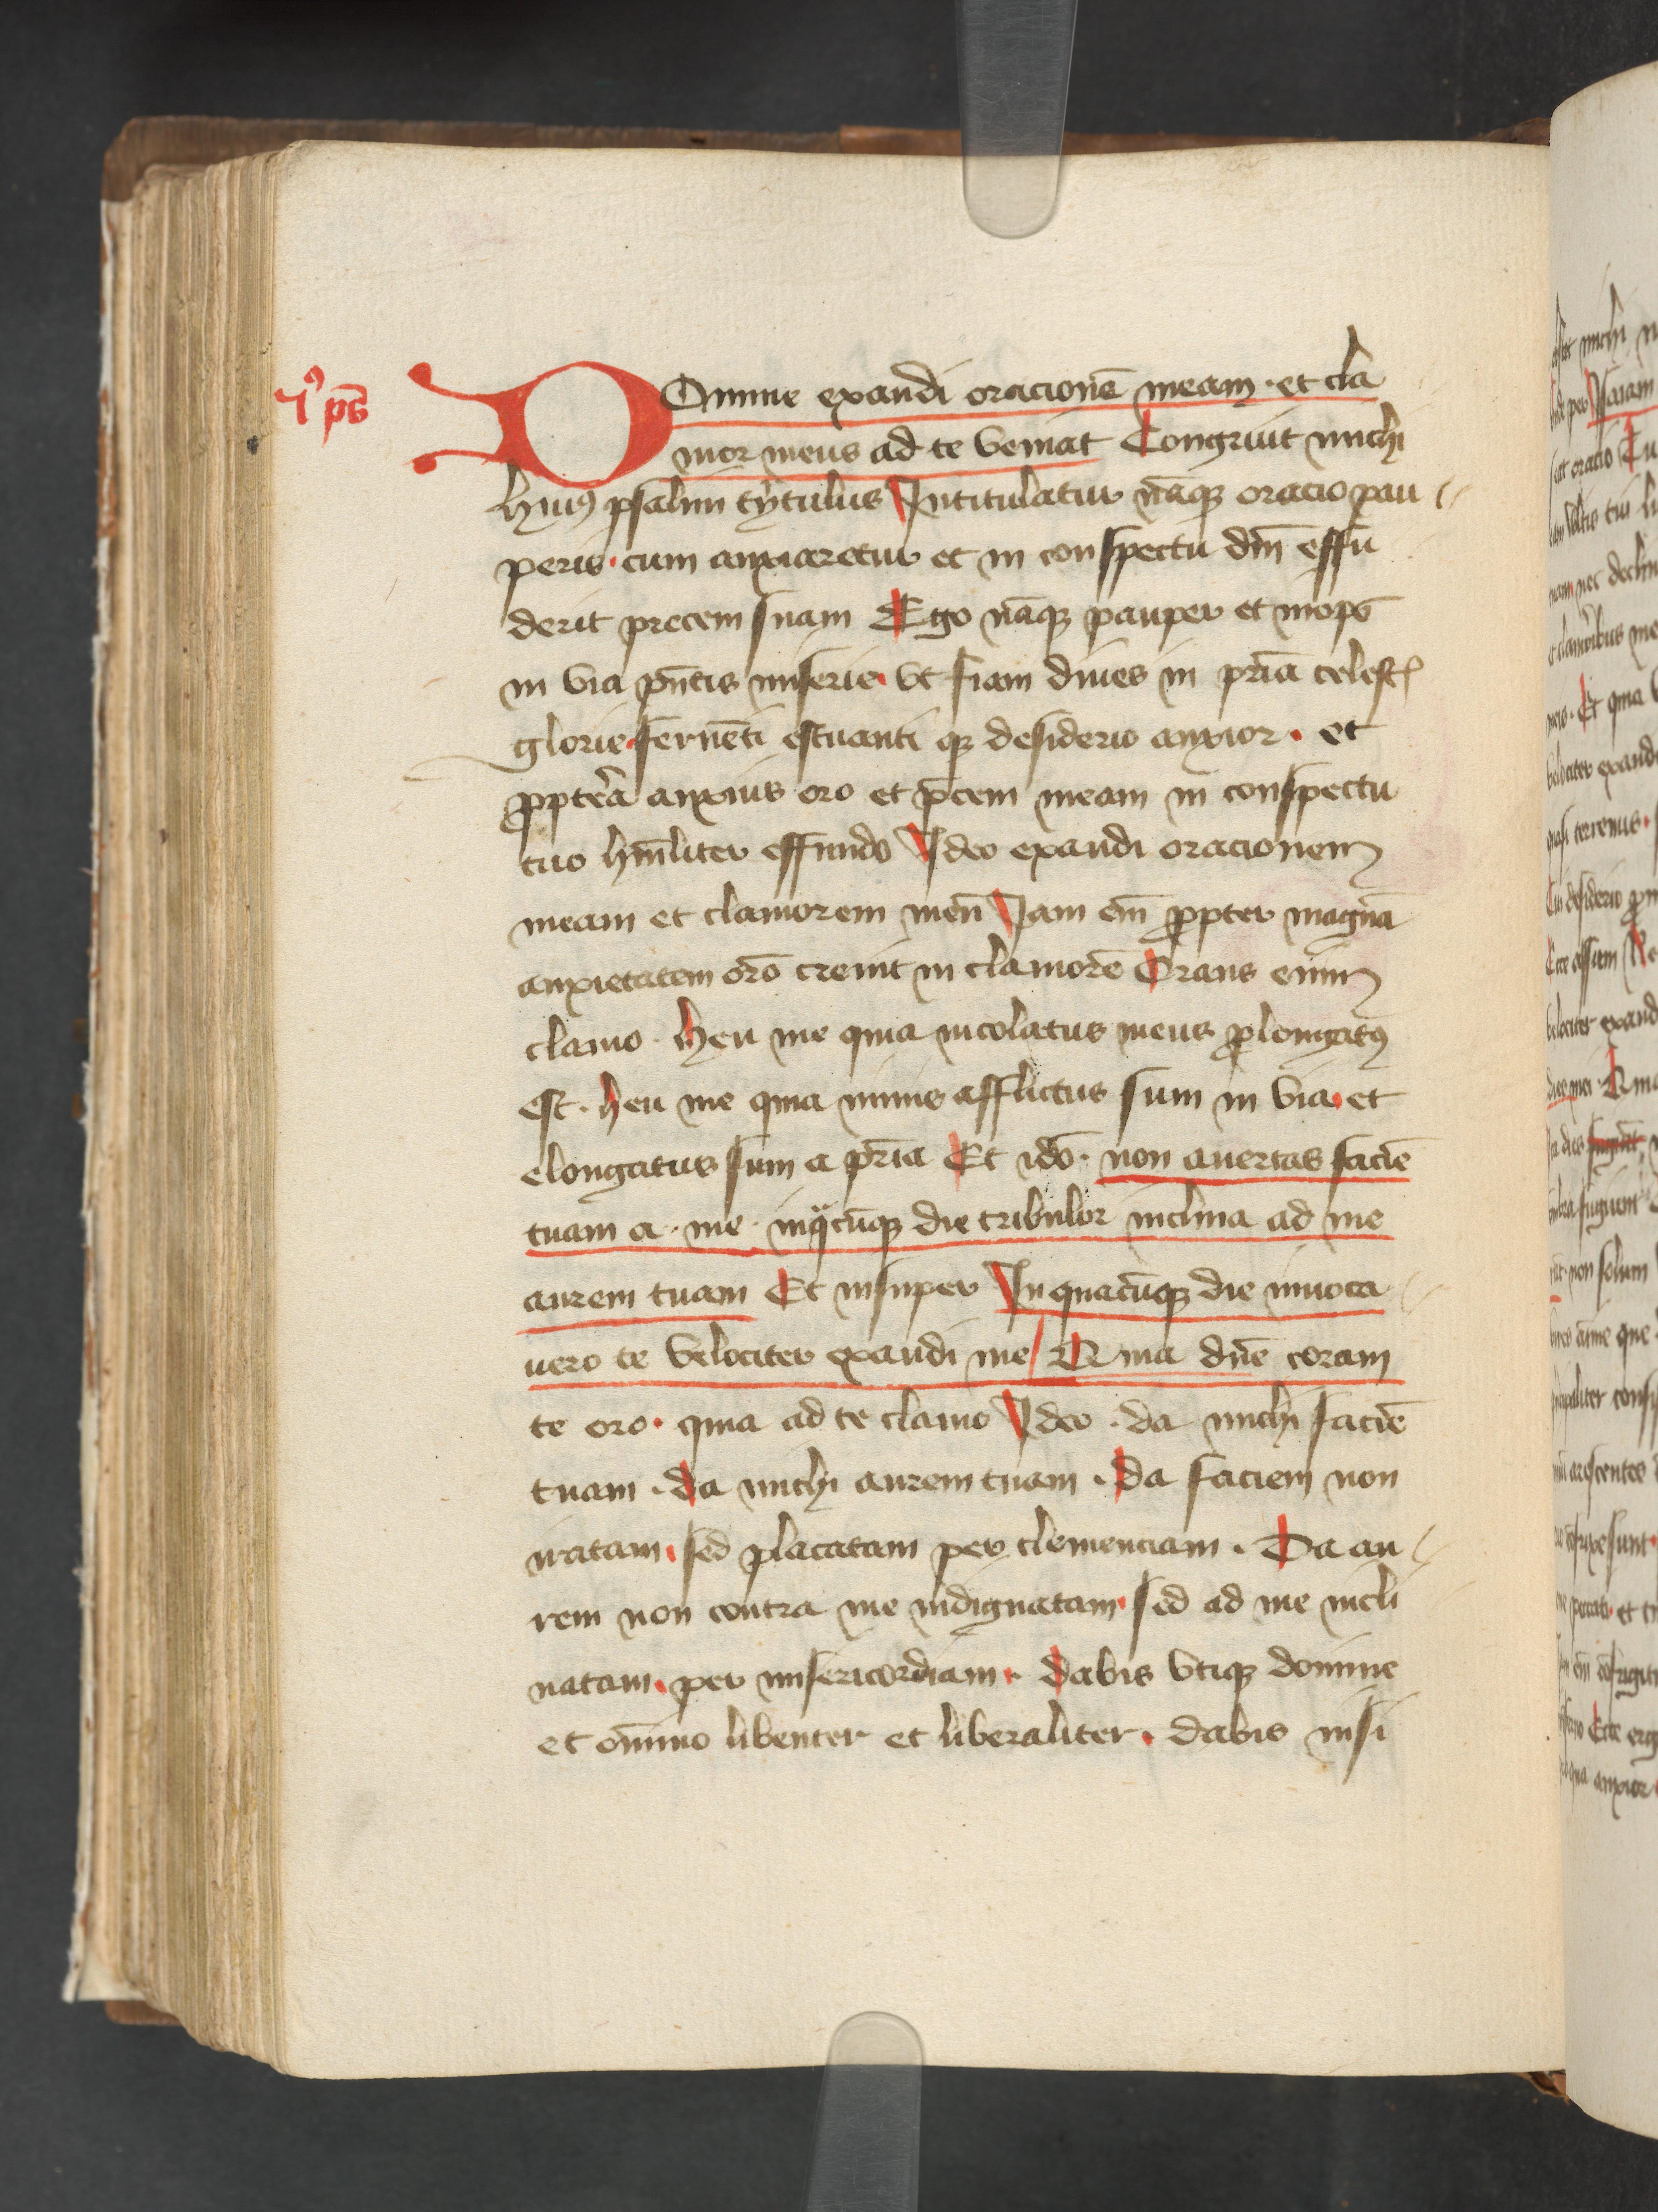 5ꝰ pẜ
DOmine exaudi oracionē meam · et cla
mor meus ad te veniat Congruit michi
huiꝰ psalmi tytulus Intitulatur nāqꝫ oracio pau
peris · cum anxiaretur et in conspectu dm̄ effu
derit precem suam Ego nāqꝫ pauper et inops
in via pn̄tis miserie · vt fiam diues in pr̄ia celest
glorie · feruēti estuanti qꝫ desiderio anxior · et
ꝓpter̄a anxius oro et p̄cem meam in conspectu
tuo hūiliter effundo Ideo exaudi oracionem
meam et clamorem meū Iam em̄ ꝓpter magnā
anxietatem orō creuit in clamorē Orans enim
clamo · heu me quia incolatus meus ꝓlongatꝰ
est · heu me quia nimis afflictus sum in via · et
elongatus sum a pr̄ia Et idō · non auertas faciē
tuam a · me · inq̈cūqꝫ die tribulor inclina ad me
aurem tuam Et insuper In quacūqꝫ die inuoca
uero te velociter exaudi me / Quia dn̄e coram
te oro · quia ad te clamo Ideo · da michi faciē
tuam · da michi aurem tuam · Da faciem non
iratam · sed placatam per clemenciam · Da au
rem non contra me indignatam · sed ad me incli
natam · per misericordiam · dabis vtiqꝫ domine
et om̄ino libenter et liberaliter · dabis nisi